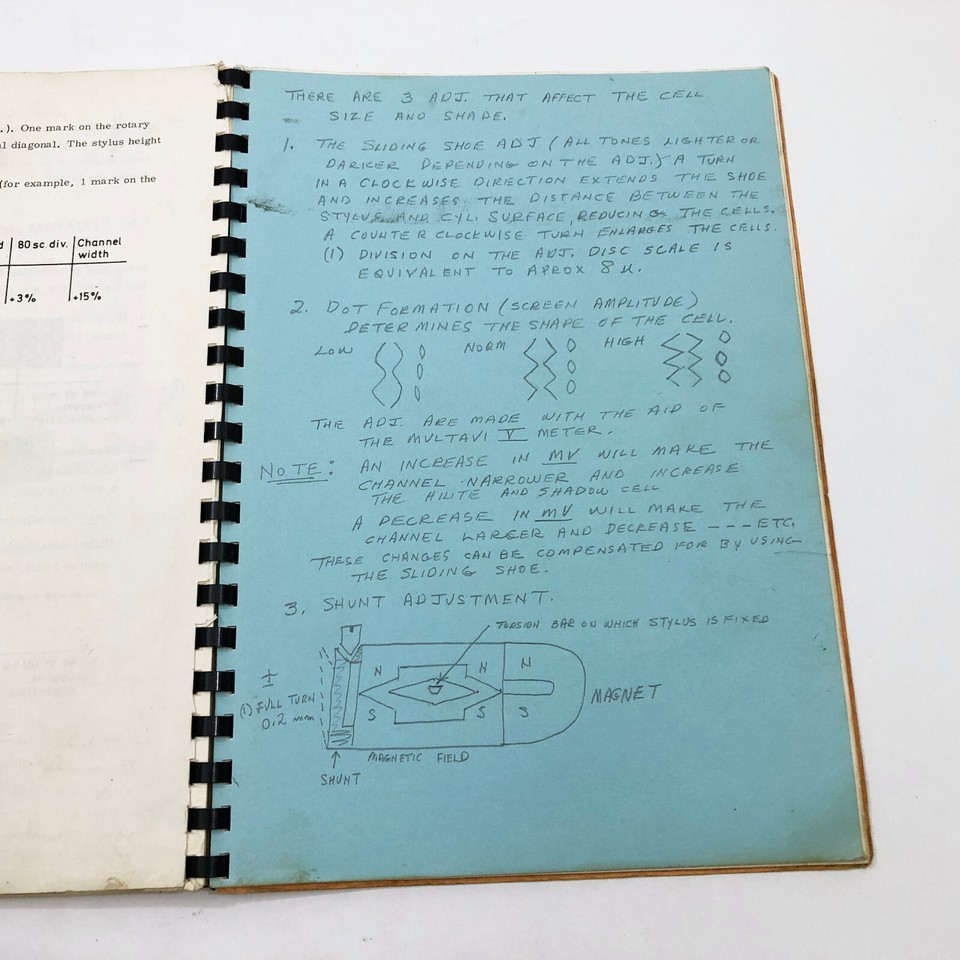 .). One mark on the rotary
l diagonal. The stylus height
(for example, 1 mark on the
d 80 sc div. Channel
width
+3% +15%
THERE ARE 3 ADJ. THAT AFFECT THE CELL
SIZE AND SHADE.
1. THE SLIDING SHOE ADJ (ALL TONES LIGHTER OR
DARKER DEPENDING ON THE ADJ.) A TURN
IN A CLOCKWISE DIRECTION EXTENDS THE SHOE
AND INCREASES THE DISTANCE BETWEEN THE
STYLUS AND CYL. SURFACE, REDUCING THE CELLS.
A COUNTER CLOCKWISE TURN ENLARGES THE CELLS.
(1) DIVISION ON THE ADJ. DISC SCALE IS
EQUIVALENT TO APROX 8 µ.
2. DOT FORMATION (SCREEN AMPLITUDE)
DETERMINES THE SHAPE OF THE CELL.
LOW NORM HIGH
THE ADJ. ARE MADE WITH THE AID OF
THE MULTAVI V METER.
NOTE: AN INCREASE IN MV WILL MAKE THE
CHANNEL NARROWER AND INCREASE
THE HILITE AND SHADOW CELL
A DECREASE IN MV WILL MAKE THE
CHANNEL LARGER AND DECREASE --- ETC.
THESE CHANGES CAN BE COMPENSATED FOR BY USING
THE SLIDING SHOE.
3. SHUNT ADJUSTMENT.
TORSION BAR ON WHICH STYLUS IS FIXED
N N N
±
(1) FULL TURN
0.2 mm
S S S
MAGNET
MAGNETIC FIELD
SHUNT